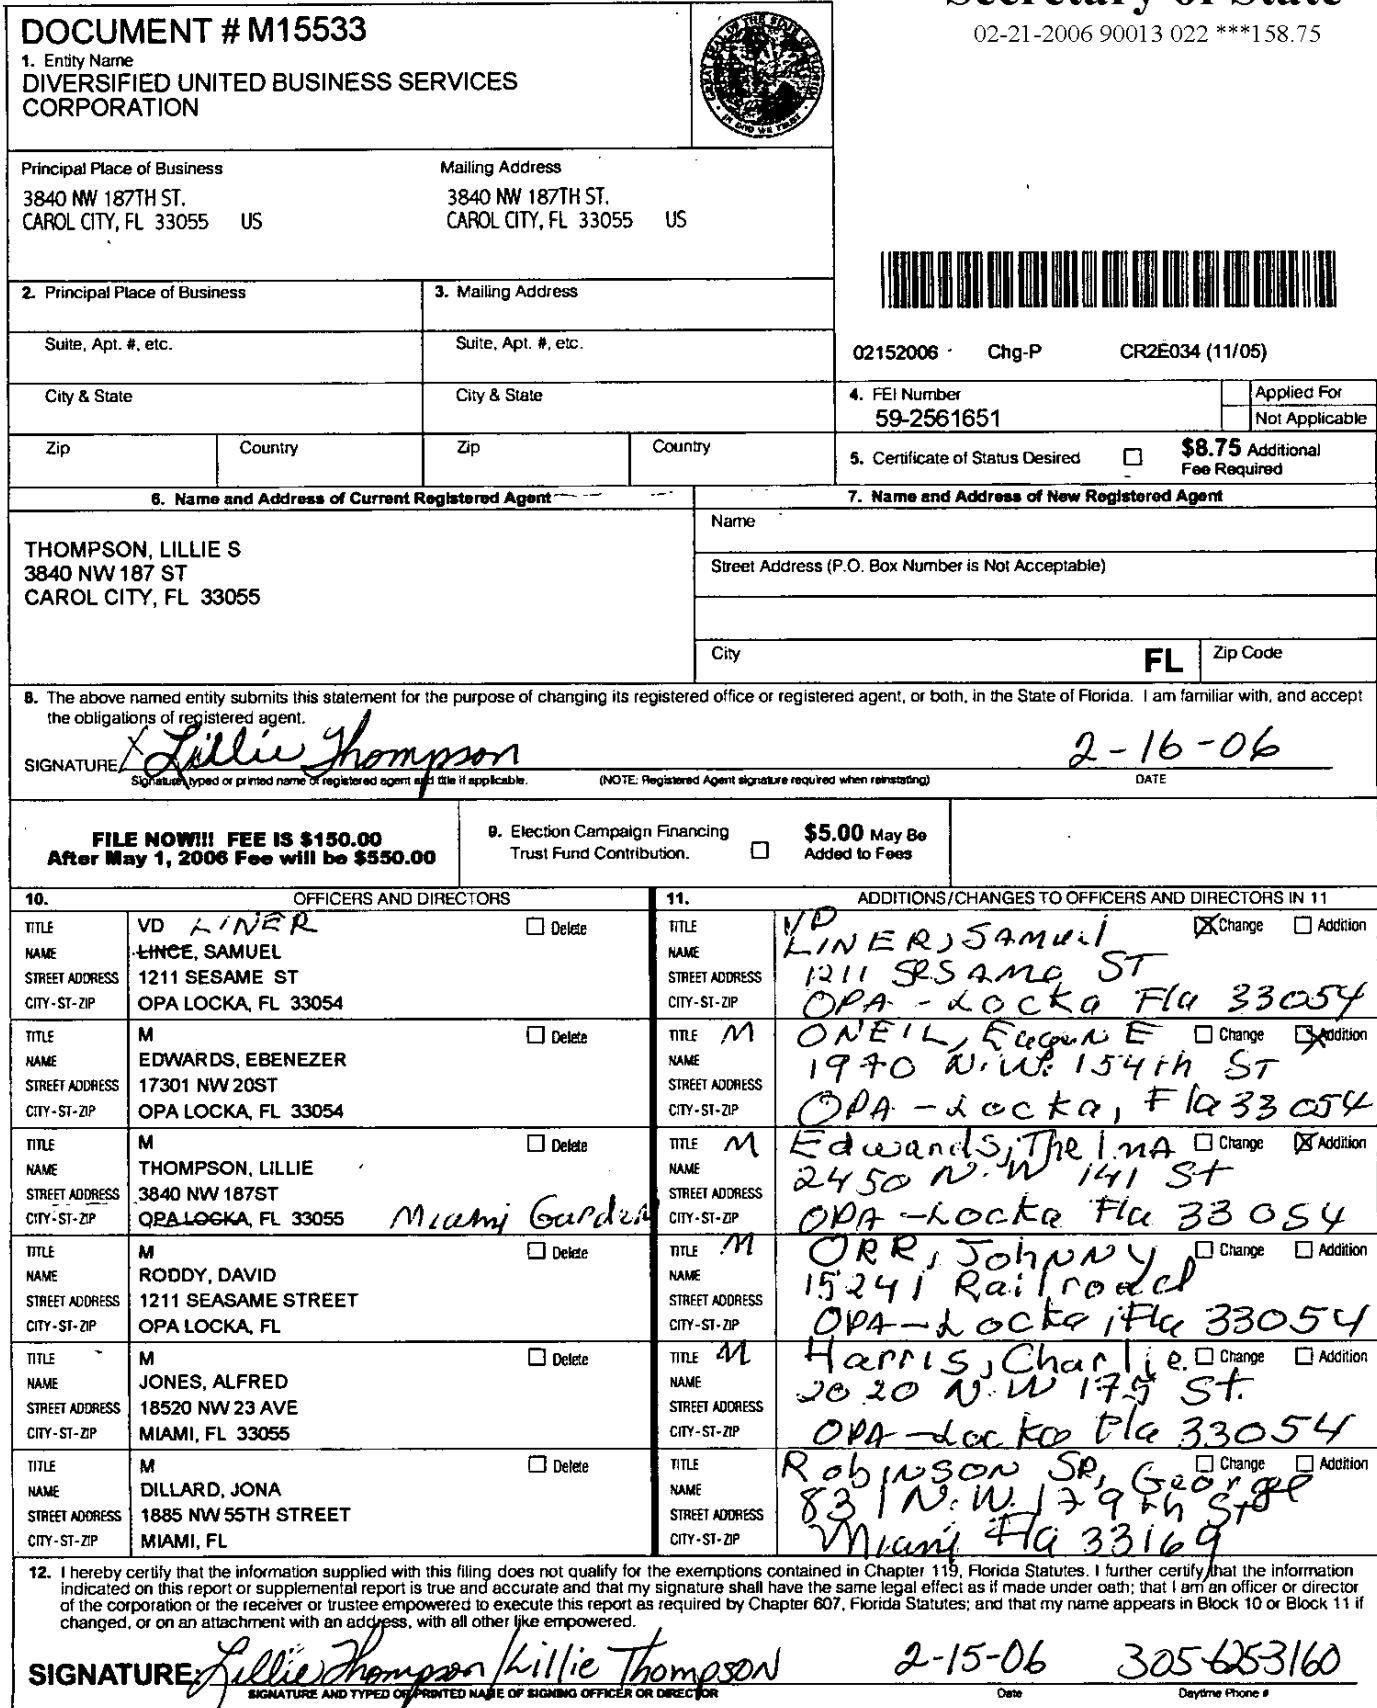 Secretary of State
02-21-2006 90013 022 ***158.75
DOCUMENT # M15533
1. Entity Name
DIVERSIFIED UNITED BUSINESS SERVICES
CORPORATION
Principal Place of Business
3840 NW 187TH ST.
CAROL CITY, FL 33055 US
Mailing Address
3840 NW 187TH ST.
CAROL CITY, FL 33055 US
2. Principal Place of Business
3. Mailing Address
Suite, Apt. #, etc.
Suite, Apt. #, etc.
City & State
City & State
Zip Country
Zip Country
02152006 Chg-P CR2E034 (11/05)
4. FEI Number
59-2561651
Applied For
Not Applicable
5. Certificate of Status Desired
$8.75 Additional
Fee Required
6. Name and Address of Current Registered Agent
THOMPSON, LILLIE S
3840 NW 187 ST
CAROL CITY, FL 33055
7. Name and Address of New Registered Agent
Name
Street Address (P.O. Box Number is Not Acceptable)
City FL Zip Code
8. The above named entity submits this statement for the purpose of changing its registered office or registered agent, or both, in the State of Florida. I am familiar with, and accept
the obligations of registered agent.
SIGNATURE X Lillie Thompson 2-16-06
Signature, typed or printed name of registered agent and title if applicable. (NOTE: Registered Agent signature required when reinstating) DATE
FILE NOW!!! FEE IS $150.00
After May 1, 2006 Fee will be $550.00
9. Election Campaign Financing
Trust Fund Contribution.
$5.00 May Be
Added to Fees
10. OFFICERS AND DIRECTORS
TITLE VD LINER Delete
NAME LINCE, SAMUEL
STREET ADDRESS 1211 SESAME ST
CITY-ST-ZIP OPA LOCKA, FL 33054
TITLE M Delete
NAME EDWARDS, EBENEZER
STREET ADDRESS 17301 NW 20ST
CITY-ST-ZIP OPA LOCKA, FL 33054
TITLE M Delete
NAME THOMPSON, LILLIE
STREET ADDRESS 3840 NW 187ST
CITY-ST-ZIP OPA LOCKA, FL 33055 Miami Garden
TITLE M Delete
NAME RODDY, DAVID
STREET ADDRESS 1211 SEASAME STREET
CITY-ST-ZIP OPA LOCKA, FL
TITLE M Delete
NAME JONES, ALFRED
STREET ADDRESS 18520 NW 23 AVE
CITY-ST-ZIP MIAMI, FL 33055
TITLE M Delete
NAME DILLARD, JONA
STREET ADDRESS 1885 NW 55TH STREET
CITY-ST-ZIP MIAMI, FL
11. ADDITIONS/CHANGES TO OFFICERS AND DIRECTORS IN 11
TITLE VD Change Addition
NAME LINER, SAMUil
STREET ADDRESS 1211 SESAME ST
CITY-ST-ZIP OPA-Locka Fla 33054
TITLE M ONEIL, EugenE Change Addition
NAME
STREET ADDRESS 1940 N.W. 154th ST
CITY-ST-ZIP OPA-Locka, Fla 33054
TITLE M Edwards, ThelmA Change Addition
NAME
STREET ADDRESS 2450 N.W 141 St
CITY-ST-ZIP OPA-Locka Fla 33054
TITLE M ORR, JohNNY Change Addition
NAME
STREET ADDRESS 15241 Railroad
CITY-ST-ZIP OPA-Locka, Fla 33054
TITLE M Harris, Charlie. Change Addition
NAME
STREET ADDRESS 2020 N.W 175 St.
CITY-ST-ZIP OPA-Locka Fla 33054
TITLE RobiNSON SR, George Change Addition
NAME
STREET ADDRESS 831 N.W. 179th St
CITY-ST-ZIP Miami Fla 33169
12. I hereby certify that the information supplied with this filing does not qualify for the exemptions contained in Chapter 119, Florida Statutes. I further certify that the information
indicated on this report or supplemental report is true and accurate and that my signature shall have the same legal effect as if made under oath; that I am an officer or director
of the corporation or the receiver or trustee empowered to execute this report as required by Chapter 607, Florida Statutes; and that my name appears in Block 10 or Block 11 if
changed, or on an attachment with an address, with all other like empowered.
SIGNATURE: Lillie Thompson/Lillie Thompson 2-15-06 305-6253160
SIGNATURE AND TYPED OR PRINTED NAME OF SIGNING OFFICER OR DIRECTOR Date Daytime Phone #